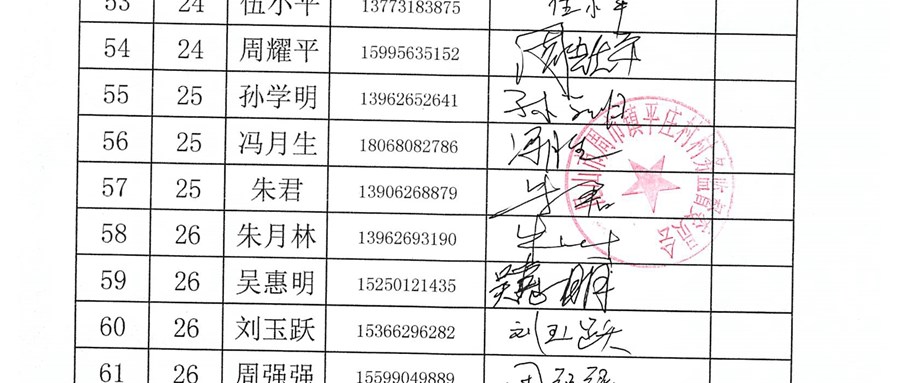 53 24 伍小平 13773183875 伍小平
54 24 周耀平 15995635152 周耀平
55 25 孙学明 13962652641 孙学明
56 25 冯月生 18068082786 冯月生
57 25 朱君 13906268879 朱君
58 26 朱月林 13962693190 朱月林
59 26 吴惠明 15250121435 吴惠明
60 26 刘玉跃 15366296282 刘玉跃
61 26 周强强 15599049889 周强强
山市周市镇平庄村村务监督委员会